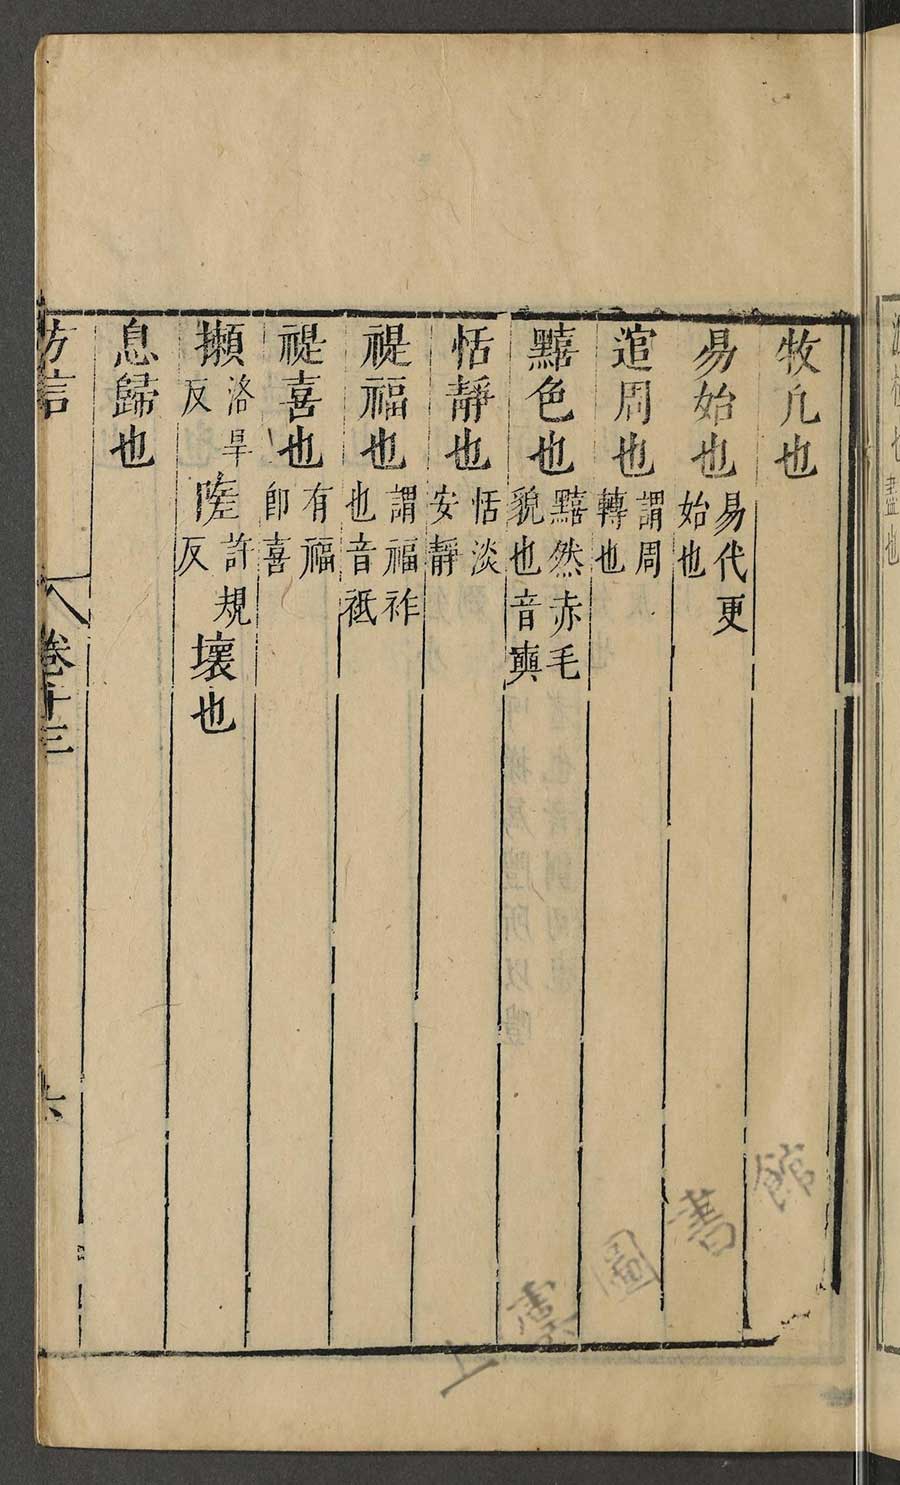 牧凡也
易始也易代更始也
逭周也謂周轉也
黸色也黸然赤毛貌也音奭
恬靜也恬淡安靜
禔福也謂福祚也音祇
禔喜也有福即喜
攋洛旱反隓許規反壞也
息歸也
方言
卷十三
六
上雲圖書館